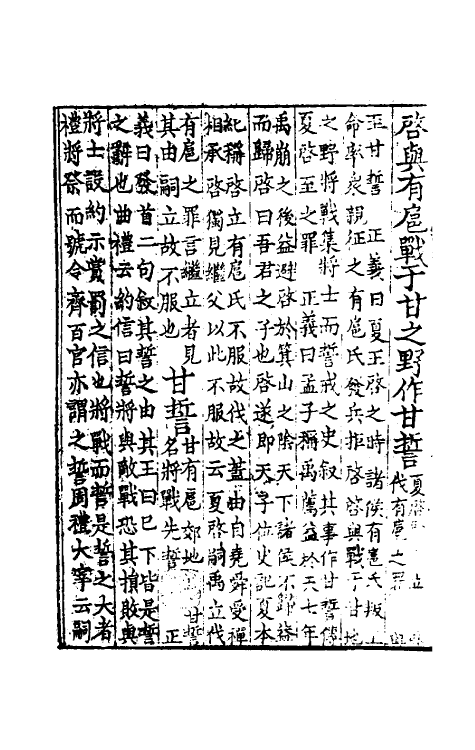 啓與有扈戰于甘之野作甘誓夏
代有扈之罪
王甘誓 正義曰夏王啓之時諸侯有扈氏叛
命率衆親征之有扈氏發兵拒啓啓與戰于甘地
之野將戰集將士而誓戒之史叙其事作甘誓傳
夏啓至之罪 正義曰孟子稱禹薦益於天七年
禹崩之後益避啓於箕山之陰天下諸侯不歸益
而歸啓曰吾君之子也啓遂即天子位史記夏本
紀稱啓立有扈氏不服故伐之蓋由自堯舜受禪
相承啓獨見繼父以此不服故云夏啓嗣禹立伐
有扈之罪言繼立者見
其由嗣立故不服也 甘誓甘有扈郊地 甘誓
名將戰先誓 正
義曰發首二句叙其誓之由其王曰已下皆是誓
之辭也曲禮云約信曰誓將與敵戰恐其損敗與
將士設約示賞罰之信也將戰而誓是誓之大者
禮將祭而號令齊百官亦謂之誓周禮大宰云嗣